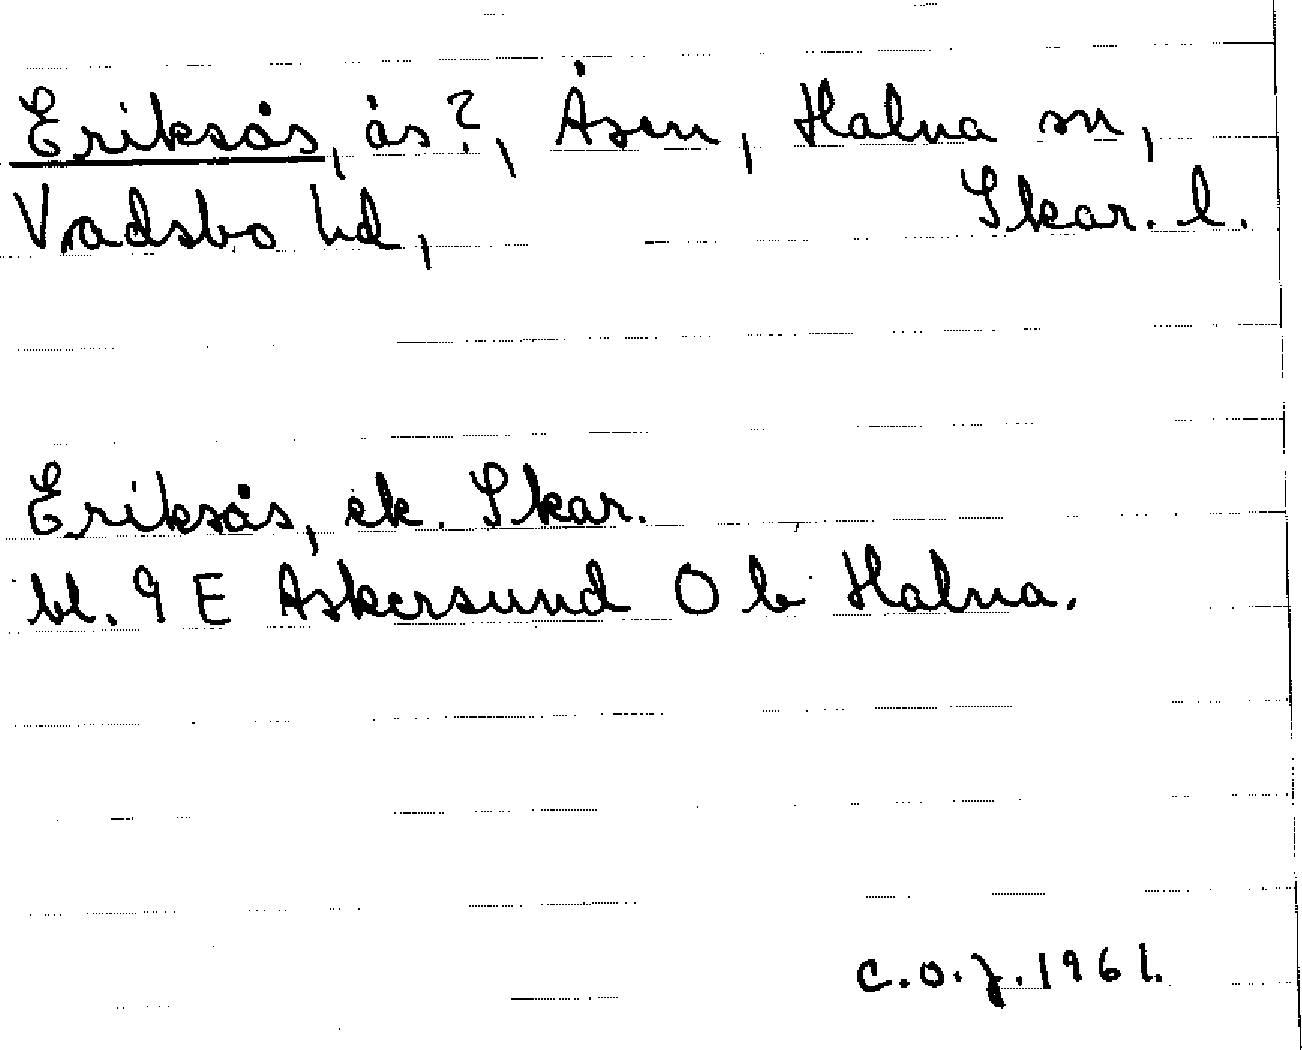 Eriksås, ås?, Åsen, Halna sn,
Vadsbo hd, Skar. l.
Eriksås, ek. Skar.
bl. 9 E Askersund O b Halna.
C.O.J. 1961.